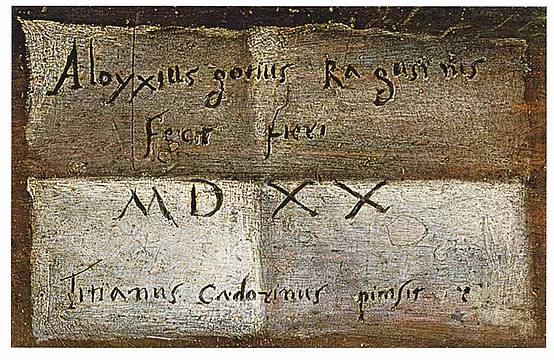 Aloyxius gotius Ragusinus
fecit fieri
MDXX
Titianus Cadorinus pinsit